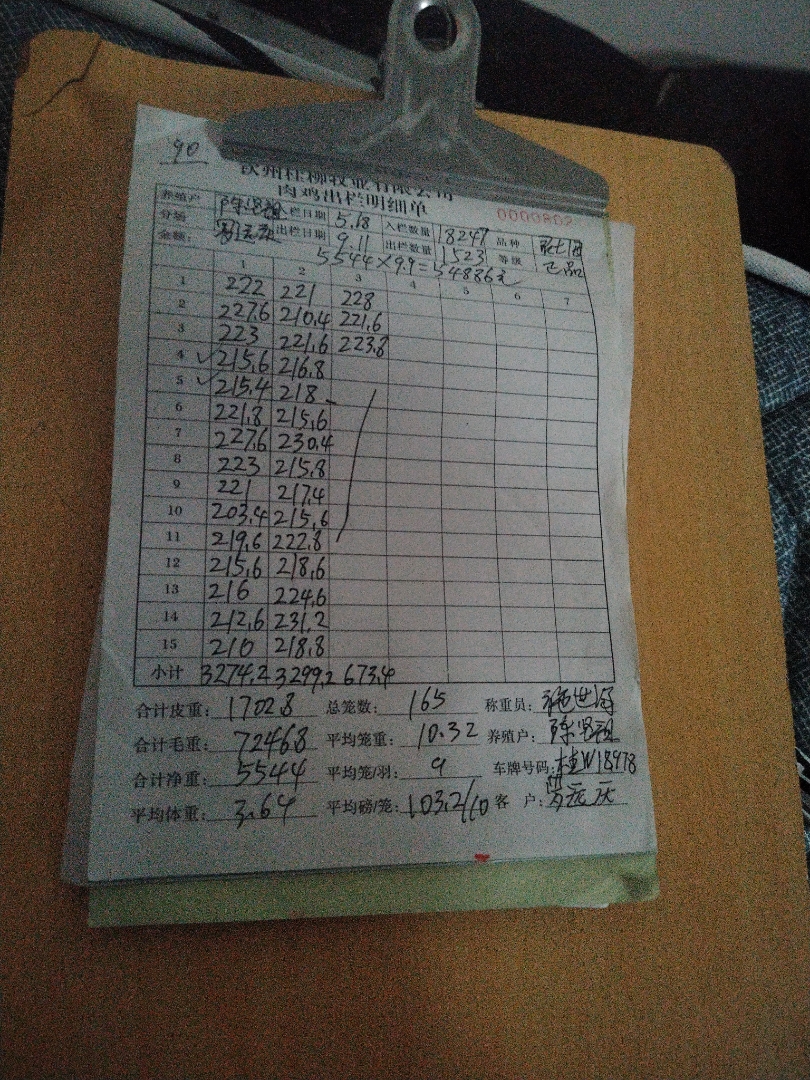 90
钦州桂柳牧业有限公司
肉鸡出栏明细单
0000802
养殖户 陈贤祖 入栏日期 5.18 入栏数量 18247 品种
分场 出栏日期 9.11 出栏数量 1523 等级 正品
金额: 5544×9.9=54886元
1 2 3 4 5 6 7
1 222 221 228
2 227.6 210.4 221.6
3 223 221.6 223.8
4 ✓ 215.6 216.8
5 ✓ 215.4 218
6 221.8 215.6
7 227.6 230.4
8 223 215.8
9 221 217.4
10 203.4 215.6
11 219.6 222.8
12 215.6 218.6
13 216 224.6
14 212.6 231.2
15 210 218.8
小计 3274.2 3299.2 673.4
合计皮重: 1702.8 总笼数: 165 称重员:
合计毛重: 7246.8 平均笼重: 10.32 养殖户: 陈贤祖
合计净重: 5544 平均笼/羽: 9 车牌号码: 桂W18978
平均体重: 3.64 平均磅/笼: 103.2/10 客 户: